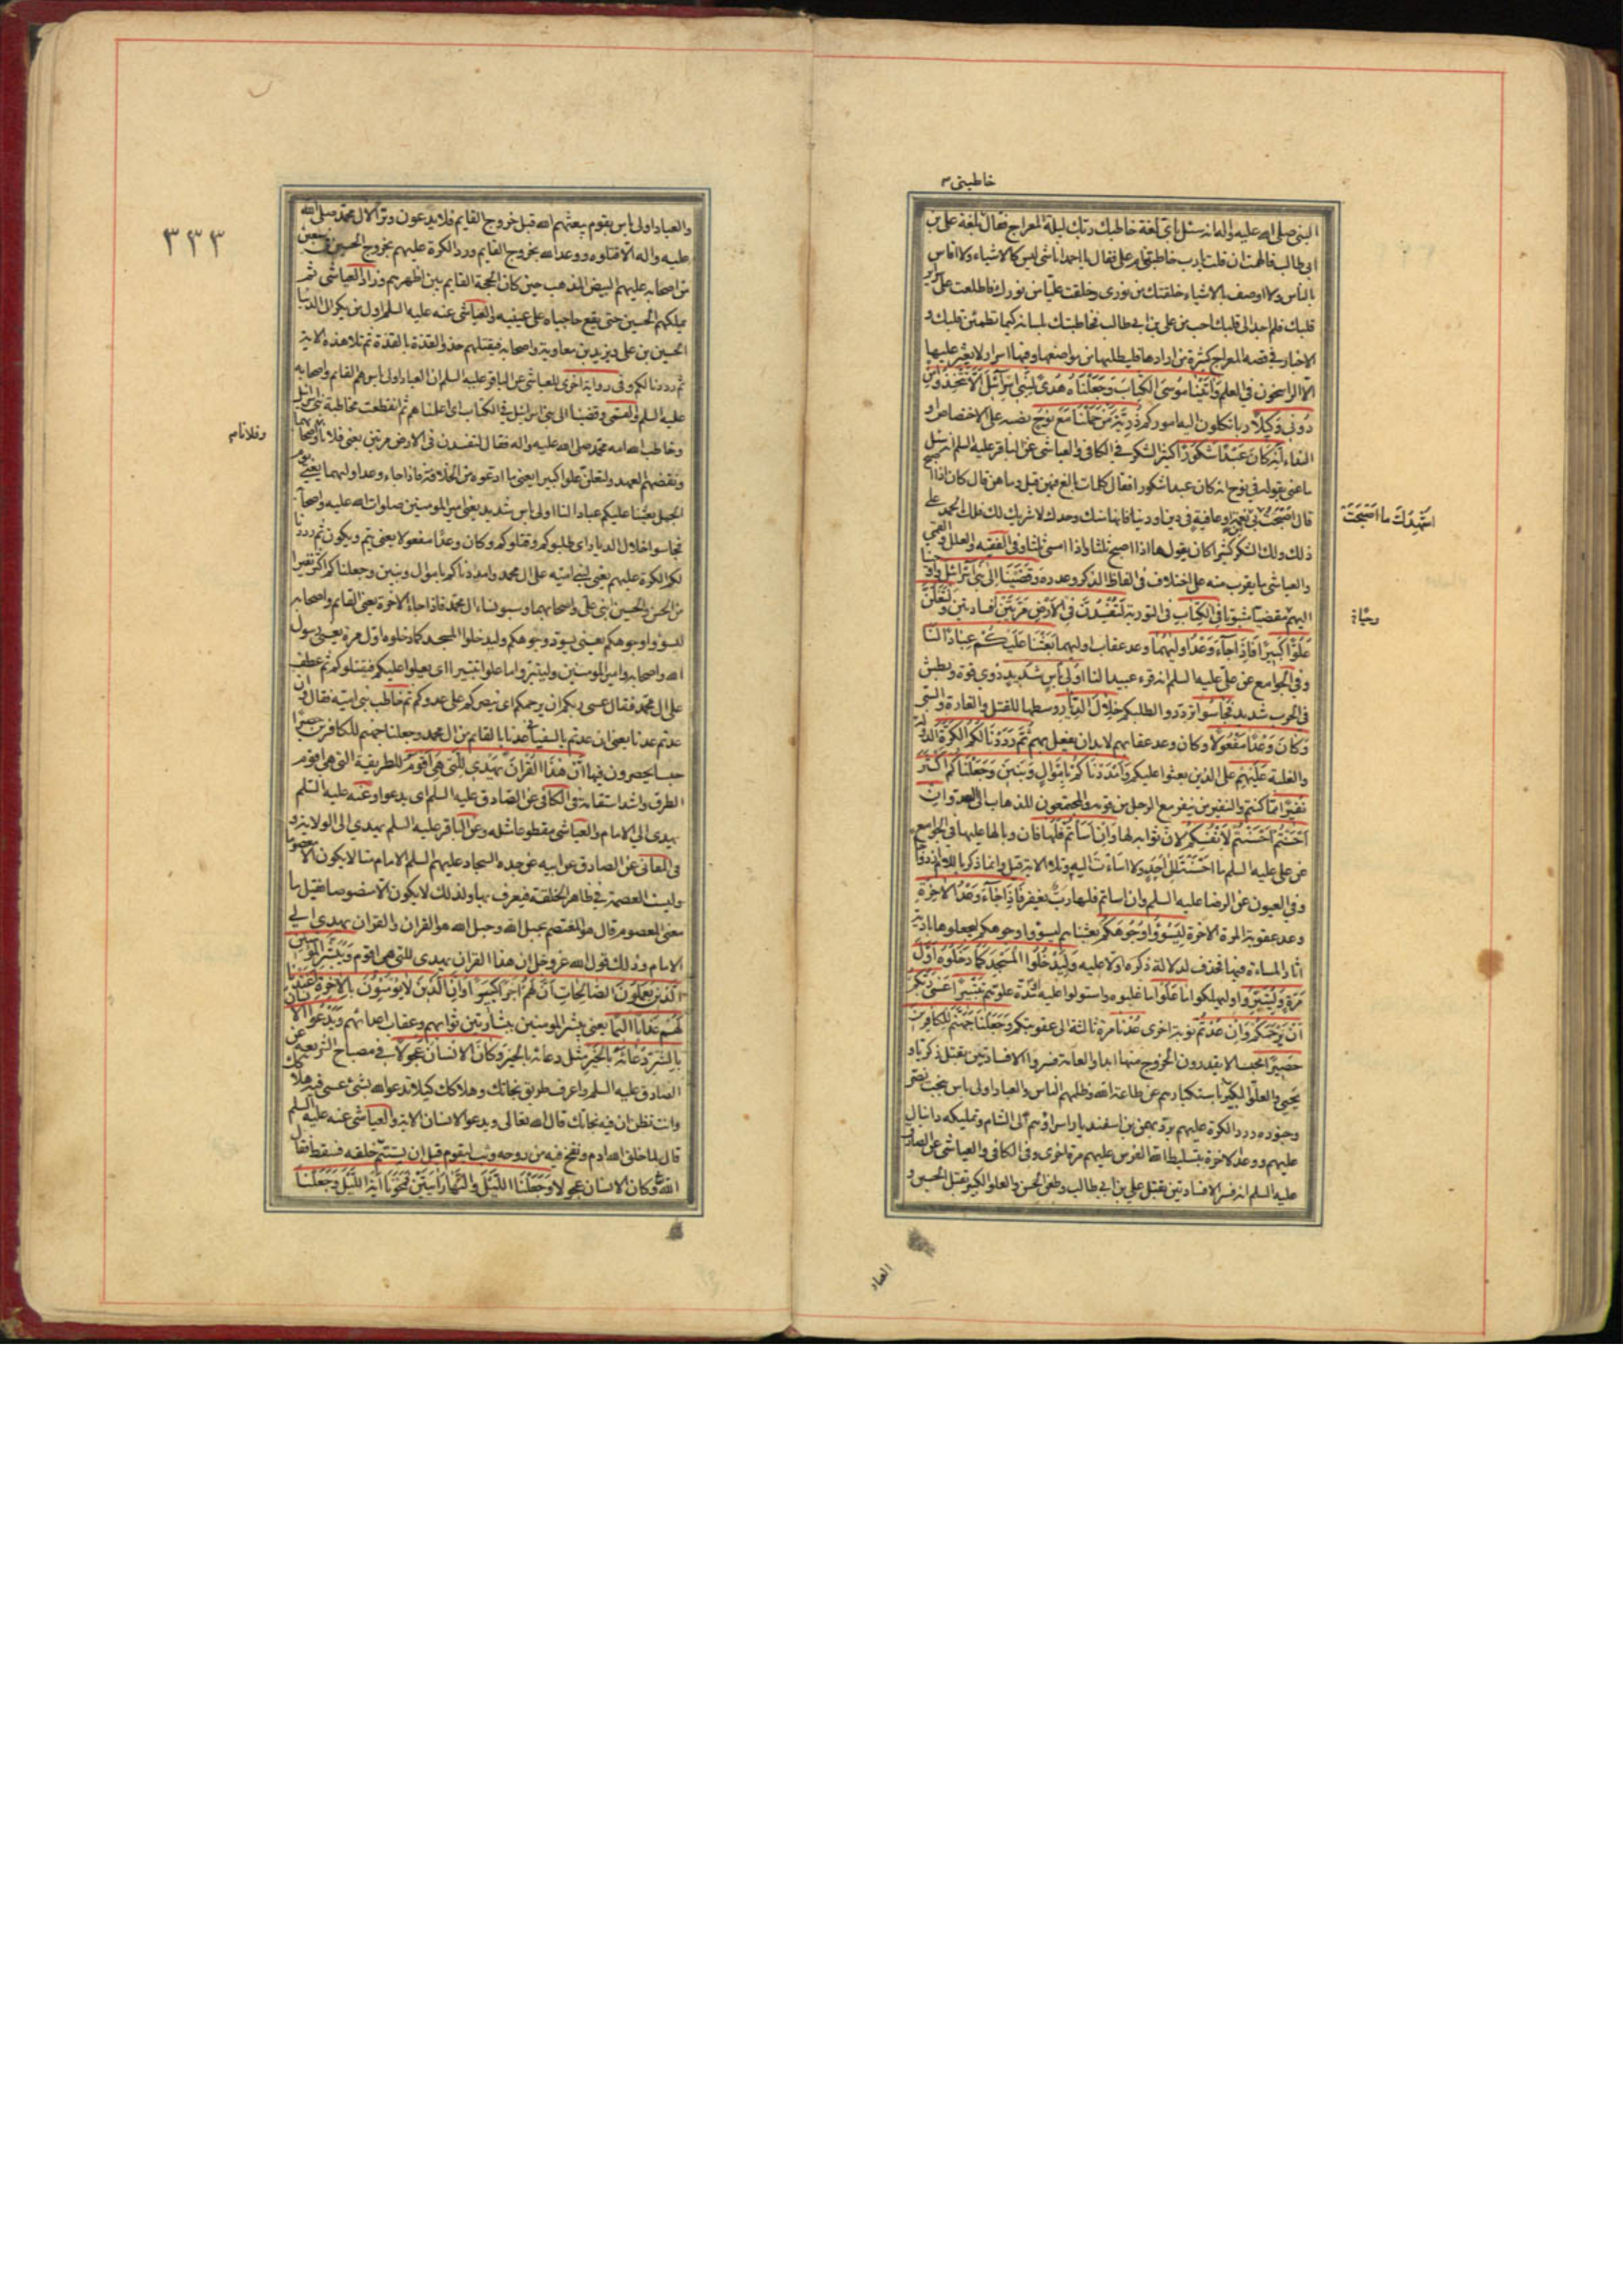 خاطبنى
النبى صلى الله عليه واله انه سئل باى لغة خاطبك ربك ليلة المعراج فقال بلغة على بن
ابى طالب فالهمت ان قلت يا رب خاطبتنى ام على فقال يا احمد انا شئ ليس كالاشياء ولا اقاس
بالناس ولا اوصف بالاشياء خلقتك من نورى وخلقت عليا من نورك فاطلعت على سراير
قلبك فلم اجد الى قلبك احب من على بن ابى طالب فخاطبتك بلسانه كيما تطمئن قلبك و
الاخبار فى قصه المعراج كثيرة من ارادها فليطلبها من مواضعها وفيها اسرار لا يعثر عليها
الا الراسخون فى العلم وَاٰتَيْنَا مُوسَى الْكِتَابَ وَجَعَلْنَاهُ هُدًى لِبَنِى اِسْرَائِلَ اَلَّا تَتَّخِذُوا مِنْ
دُونِى وَكِيلًا ربا تكلون اليه اموركم ذُرِّيَّةَ مَنْ حَمَلْنَا مَعَ نُوحٍ نصبه على الاختصاص او
النداء اِنَّهُ كَانَ عَبْدًا شَكُورًا كثير الشكر فى الكافى والعياشى عن الباقر عليه السلم انه سئل
ما عنى بقوله فى نوح انه كان عبدا شكورا فقال كلمات بالغ فيهن قيل وما هن قال كان اذا اصبح
قال اصبحت من نعمة او عافية فى دين او دنيا فانها منك وحدك لا شريك لك فلك الحمد على
اشهدك ما اصبحت
ذلك ولك الشكر كثيرا كان يقولها اذا اصبح ثلثا واذا امسى ثلثا وفى الفقيه والعلل والقمى
والعياشى ما يقرب منه على اختلاف فى الفاظ الذكر وعدده وَقَضَيْنَا اِلٰى بَنِى اِسْرَائِلَ واوحينا
اليهم مقضيا مثبوتا فِى الْكِتَابِ فى التورية لَتُفْسِدُنَّ فِى الْاَرْضِ مَرَّتَيْنِ افسادتين وَلَتَعْلُنَّ
عُلُوًّا كَبِيرًا فَاِذَا جَاءَ وَعْدُ اُولٰيهُمَا وعد عقاب اوليهما بَعَثْنَا عَلَيْكُمْ عِبَادًا لَنَا
وفى الجوامع عن على عليه السلم انه قرء عبيدا لنا اُولِى بَأْسٍ شَدِيدٍ ذوى قوة وبطش
فى الحرب شديد فَجَاسُوا ترددوا لطلبكم خِلَالَ الدِّيَارِ وسطها للقتل والغارة والسبى
وَكَانَ وَعْدًا مَفْعُولًا وكان وعد عقابهم لابد ان يفعل بهم ثُمَّ رَدَدْنَا لَكُمُ الْكَرَّةَ الدولة
والغلبة عَلَيْهِمْ على الذين بعثوا عليكم وَاَمْدَدْنَاكُمْ بِاَمْوَالٍ وَبَنِينَ وَجَعَلْنَاكُمْ اَكْثَرَ
نَفِيرًا مما كنتم والنفير من ينفر مع الرجل من قومه والمجتمعون للذهاب الى العدو اِنْ
اَحْسَنْتُمْ اَحْسَنْتُمْ لِاَنْفُسِكُمْ لان ثوابه لها وَاِنْ اَسَأْتُمْ فَلَهَا فان وبالها عليها فى الجوامع
عن على عليه السلم ما احسنت الى احد ولا اسات اليه وتلا الاية قيل وانما ذكر باللام ازدواجا
وفى العيون عن الرضا عليه السلم وان اساتم فلها رب يغفر فَاِذَا جَاءَ وَعْدُ الْاٰخِرَةِ
وعد عقوبة المرة الاخرة لِيَسُوؤُا وُجُوهَكُمْ بعثناهم ليسوؤا وجوهكم ليجعلوها بادية
اثار المساءة فيها فحذف لدلالة ذكره اولا عليه وَلِيَدْخُلُوا الْمَسْجِدَ كَمَا دَخَلُوهُ اَوَّلَ
مَرَّةٍ وَلِيُتَبِّرُوا وليهلكوا مَا عَلَوْا ما غلبوه واستولوا عليه او مدة علوهم تَتْبِيرًا عَسٰى رَبُّكُمْ
اَنْ يَرْحَمَكُمْ وَاِنْ عُدْتُمْ نوبة اخرى عُدْنَا مرة ثالثة الى عقوبتكم وَجَعَلْنَا جَهَنَّمَ لِلْكَافِرِينَ
حَصِيرًا محبسا لا يقدرون الخروج منها ابدا والعامة فسروا الافسادتين بقتل زكريا و
يحيى والعلو الكبير باستكبارهم عن طاعة الله وظلمهم الناس والعباد اولى باس ببخت نصر
وجنوده ورد الكرة عليهم برد بهمن بن اسفنديار اسراؤهم الى الشام وتمليكه دانيال
عليهم ووعد الاخرة بتسليط الله الفرس عليهم مرة اخرى وفى الكافى والعياشى عن الصادق
عليه السلم انه فسر الافسادتين بقتل على بن ابى طالب وطعن الحسن والعلو الكبير بقتل الحسين و
العباد
٣٣٣
والعباد اولى باس بقوم يبعثهم الله قبل خروج القايم فلا يدعون وترا لال محمد صلى الله
عليه واله الا قتلوه ووعد الله بخروج القايم ورد الكرة عليهم بخروج الحسين فى سبعين
من اصحابه عليهم البيض المذهب حين كان الحجة القايم بين اظهرهم وزاد العياشى ثم
يملكهم الحسين حتى يقع حاجباه على عينيه والعياشى عنه عليه السلم اول من يكر الى الدنيا
الحسين بن على ويزيد بن معاوية واصحابه فيقتلهم حذو القذة بالقذة ثم تلا هذه الاية
ثم رددنا لكم وفى رواية اخرى للعياشى عن الباقر عليه السلم ان العباد اولى باس هم القايم واصحابه
عليه السلم والقمى وقضينا الى بنى اسرائل فى الكتاب اى اعلمناهم ثم انقطعت مخاطبة بنى اسرائل
وخاطب الله امه محمد صلى الله عليه واله فقال لتفسدن فى الارض مرتين يعنى فلانا واصحابهما
وفلانا
ونقضهم العهد ولتعلن علوا كبيرا يعنى ما ادعوه من الخلافة فاذا جاء وعد اوليهما يعنى يوم
الجمل بعثنا عليكم عبادا لنا اولى باس شديد يعنى امير المومنين صلوات الله عليه واصحابه
فجاسوا خلال الديار اى طلبوكم وقتلوكم وكان وعدا مفعولا يعنى يتم ويكون ثم رددنا
لكم الكرة عليهم يعنى لبنى امية على ال محمد وامددناكم باموال وبنين وجعلناكم اكثر نفيرا
من الحسن والحسين ابنى على واصحابهما وسبوا نساء ال محمد فاذا جاء وعد الاخرة يعنى القايم واصحابه
ليسوؤا وجوهكم يعنى يسود وجوهكم وليدخلوا المسجد كما دخلوه اول مرة يعنى رسول
الله واصحابه وامير المومنين وليتبروا ما علوا تتبيرا اى يعلوا عليكم فيقتلوكم ثم عطف
على ال محمد فقال عسى ربكم ان يرحمكم اى ينصركم على عدوكم ثم خاطب بنى امية فقال وان
عدتم عدنا يعنى ان عدتم بالسفيانى عدنا بالقايم من ال محمد وجعلنا جهنم للكافرين حصيرا
حبسا يحصرون فيها اِنَّ هٰذَا الْقُرْاٰنَ يَهْدِى لِلَّتِى هِىَ اَقْوَمُ للطريقة التى هى اقوم
الطرق واشد استقامة فى الكافى عن الصادق عليه السلم اى يدعو وعنه عليه السلم
يهدى الى الامام والعياشى مقطوعا مثله وعن الباقر عليه السلم يهدى الى الولاية و
فى المعانى عن الصادق عن ابيه عن جده السجاد عليهم السلم الامام منا لا يكون الا معصوما
وليست العصمة فى ظاهر الخلقة فيعرف بها ولذلك لا يكون الا منصوصا فقيل ما
معنى المعصوم قال هو المعتصم بحبل الله وحبل الله هو القران والقران يهدى الى
الامام وذلك قول الله عز وجل ان هذا القران يهدى للتى هى اقوم وَيُبَشِّرُ الْمُؤْمِنِينَ
الَّذِينَ يَعْمَلُونَ الصَّالِحَاتِ اَنَّ لَهُمْ اَجْرًا كَبِيرًا وَاَنَّ الَّذِينَ لَا يُؤْمِنُونَ بِالْاٰخِرَةِ اَعْتَدْنَا
لَهُمْ عَذَابًا اَلِيمًا يعنى يبشر المومنين ببشارتين ثوابهم وعقاب اعدائهم وَيَدْعُ الْاِنْسَانُ
بِالشَّرِّ دُعَاءَهُ بِالْخَيْرِ مثل دعائه بالخير وَكَانَ الْاِنْسَانُ عَجُولًا فى مصباح الشريعه عن
الصادق عليه السلم واعرف طريق نجاتك وهلاكك كيلا تدعو الله بشئ عسى فيه هلاكك
وانت تظن ان فيه نجاتك قال الله تعالى ويدعو الانسان الاية والعياشى عنه عليه السلم
قال لما خلق الله ادم ونفخ فيه من روحه وثب ليقوم قبل ان يستتم خلقه فسقط فقال
الله وكان الانسان عجولا وَجَعَلْنَا اللَّيْلَ وَالنَّهَارَ اٰيَتَيْنِ فَمَحَوْنَا اٰيَةَ اللَّيْلِ وَجَعَلْنَا